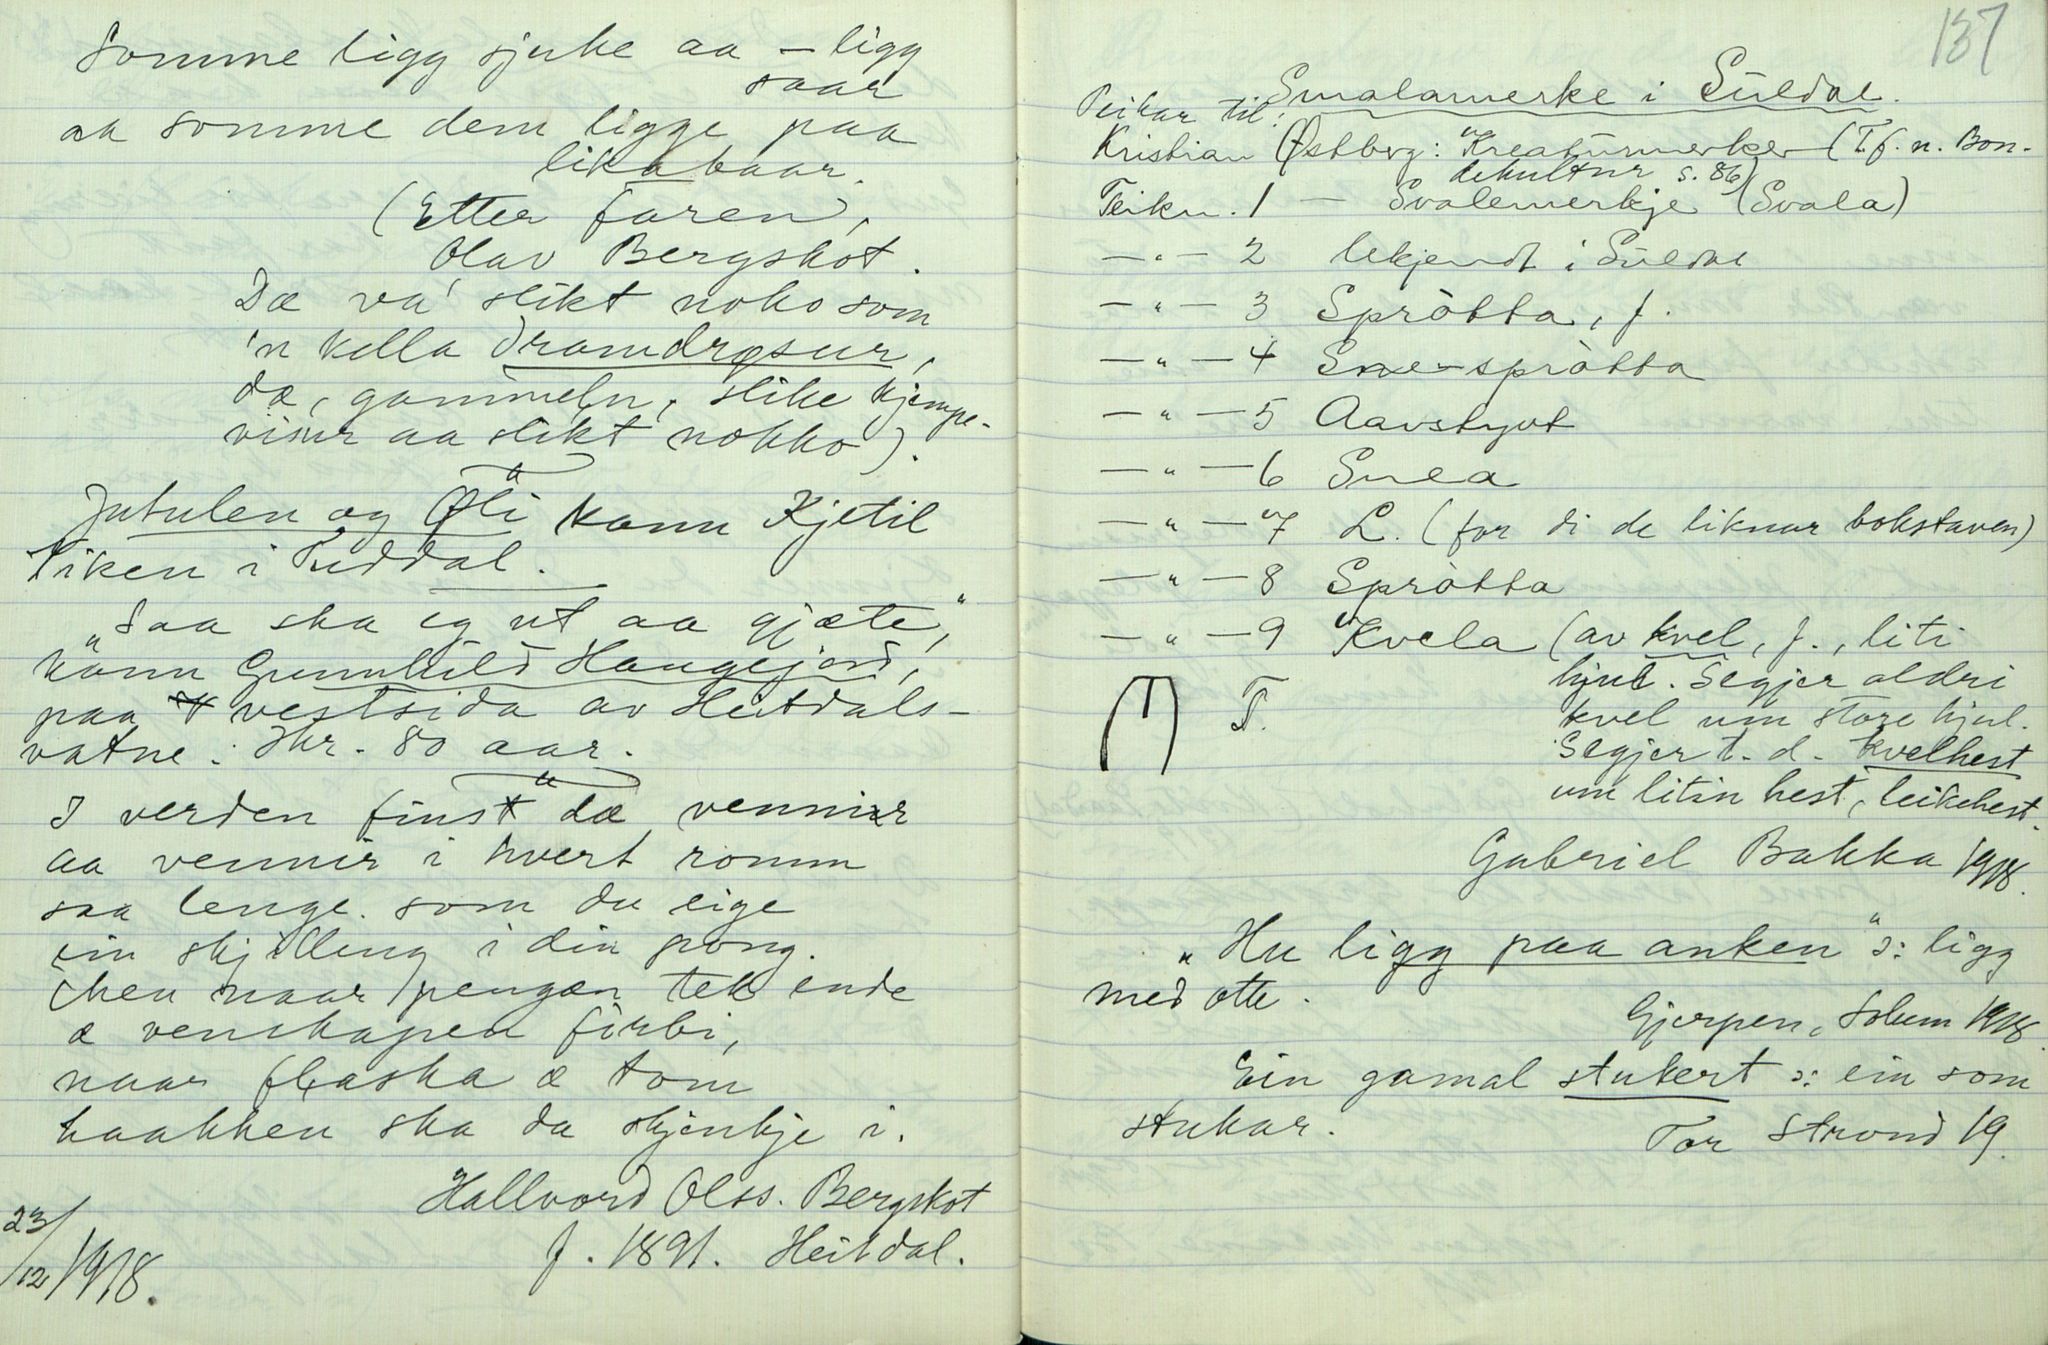 Somme ligg sjuke aa – ligg
saar
aa somme dem ligge paa
likabaar.
(Etter faren,
Olav Bergskot.
Dæ va' slikt noko som
'n kalla dramdrøsur,
dæ, gammeln, slike kjempe-
visur aa slikt nokko).
Jutulen og Øli kann Kjetil
Tiken i Tuddal.
„Saa ska eg ut aa gjæte,"
kann Gunnhild Haugejord,
paa vestsida av Heitdals-
vatne. Ikr. 80 aar.
I verden finst dæ vennir
aa vennir i hvert romm
saa lenge som du eige
ein skjilling i din pong.
Men naar pengan tek ende
æ venskapen forbi,
naar flaska æ tom
haakken ska da skjenkje i.
Hallvord Olss. Bergskot
f. 1891. Heitdal.
23/12 1918.
137
Smalamerke i Suldal.
Peikar til:
Kristian Østberg: "Kreaturmerker (Tf. n. Bon-
dekultur s. 86)
Teikn. 1 – Svalemerkje (Svala)
— " — 2 Ukjendt i Suldal
— " — 3 Spròtta, f.
— " — 4 Sne-spròtta
— " — 5 Aavstyvt
— " — 6 Snea
— " — 7 L. (for di de liknar bokstaven)
— " — 8 Spròtta
— " — 9 Kvela (av kvel, f., liti
hjul. Segjer aldri
T. kvel um store hjul.
Segjer t. d. kvelhest
um litin hest, leikehest.
Gabriel Bakka 1918.
„Hu ligg paa anken" ɔ: ligg
med otte.
Gjerpen, Solum 1918
Ein gamal stukert ɔ: ein som
stukar.
Tor Strond 19.